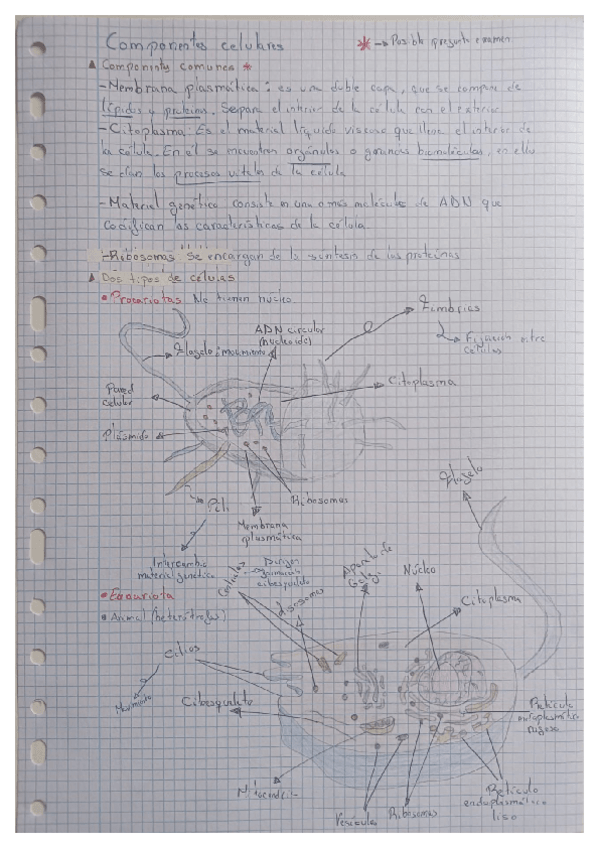 Componentes celulares
* → Posible pregunta examen
Components comunes *
- Membrana plasmática: es una doble capa, que se compone de
lípidos y proteínas. Separa el interior de la célula con el exterior
- Citoplasma: Es el material líquido viscoso que llena el interior de
la célula. En él se encuentran orgánulos o grandes biomoléculas, en ella
se dan los procesos vitales de la célula
- Material genético consiste en una o más moléculas de ADN que
codifican las características de la célula.
- Ribosomas: Se encargan de la síntesis de las proteínas
Dos tipos de células
• Procariotas No tienen núcleo.
Fimbrias
Fijación entre
células
ADN circular
(nucleoide)
Flagelo: movimiento
Citoplasma
Pared
celular
Plásmido
Ribosomas
Pili
Membrana
plasmática
Flagelo
Intercambio
material genético
Dirigen
formación
citoesqueleto
Aparato de
Golgi
Núcleo
• Eucariota
Lisosomas
Citoplasma
• Animal (heterótrofas)
Cilios
Movimiento
Citoesqueleto
Retículo
endoplasmático
rugoso
Mitocondria
Vesícula
Ribosomas
Retículo
endoplasmático
liso